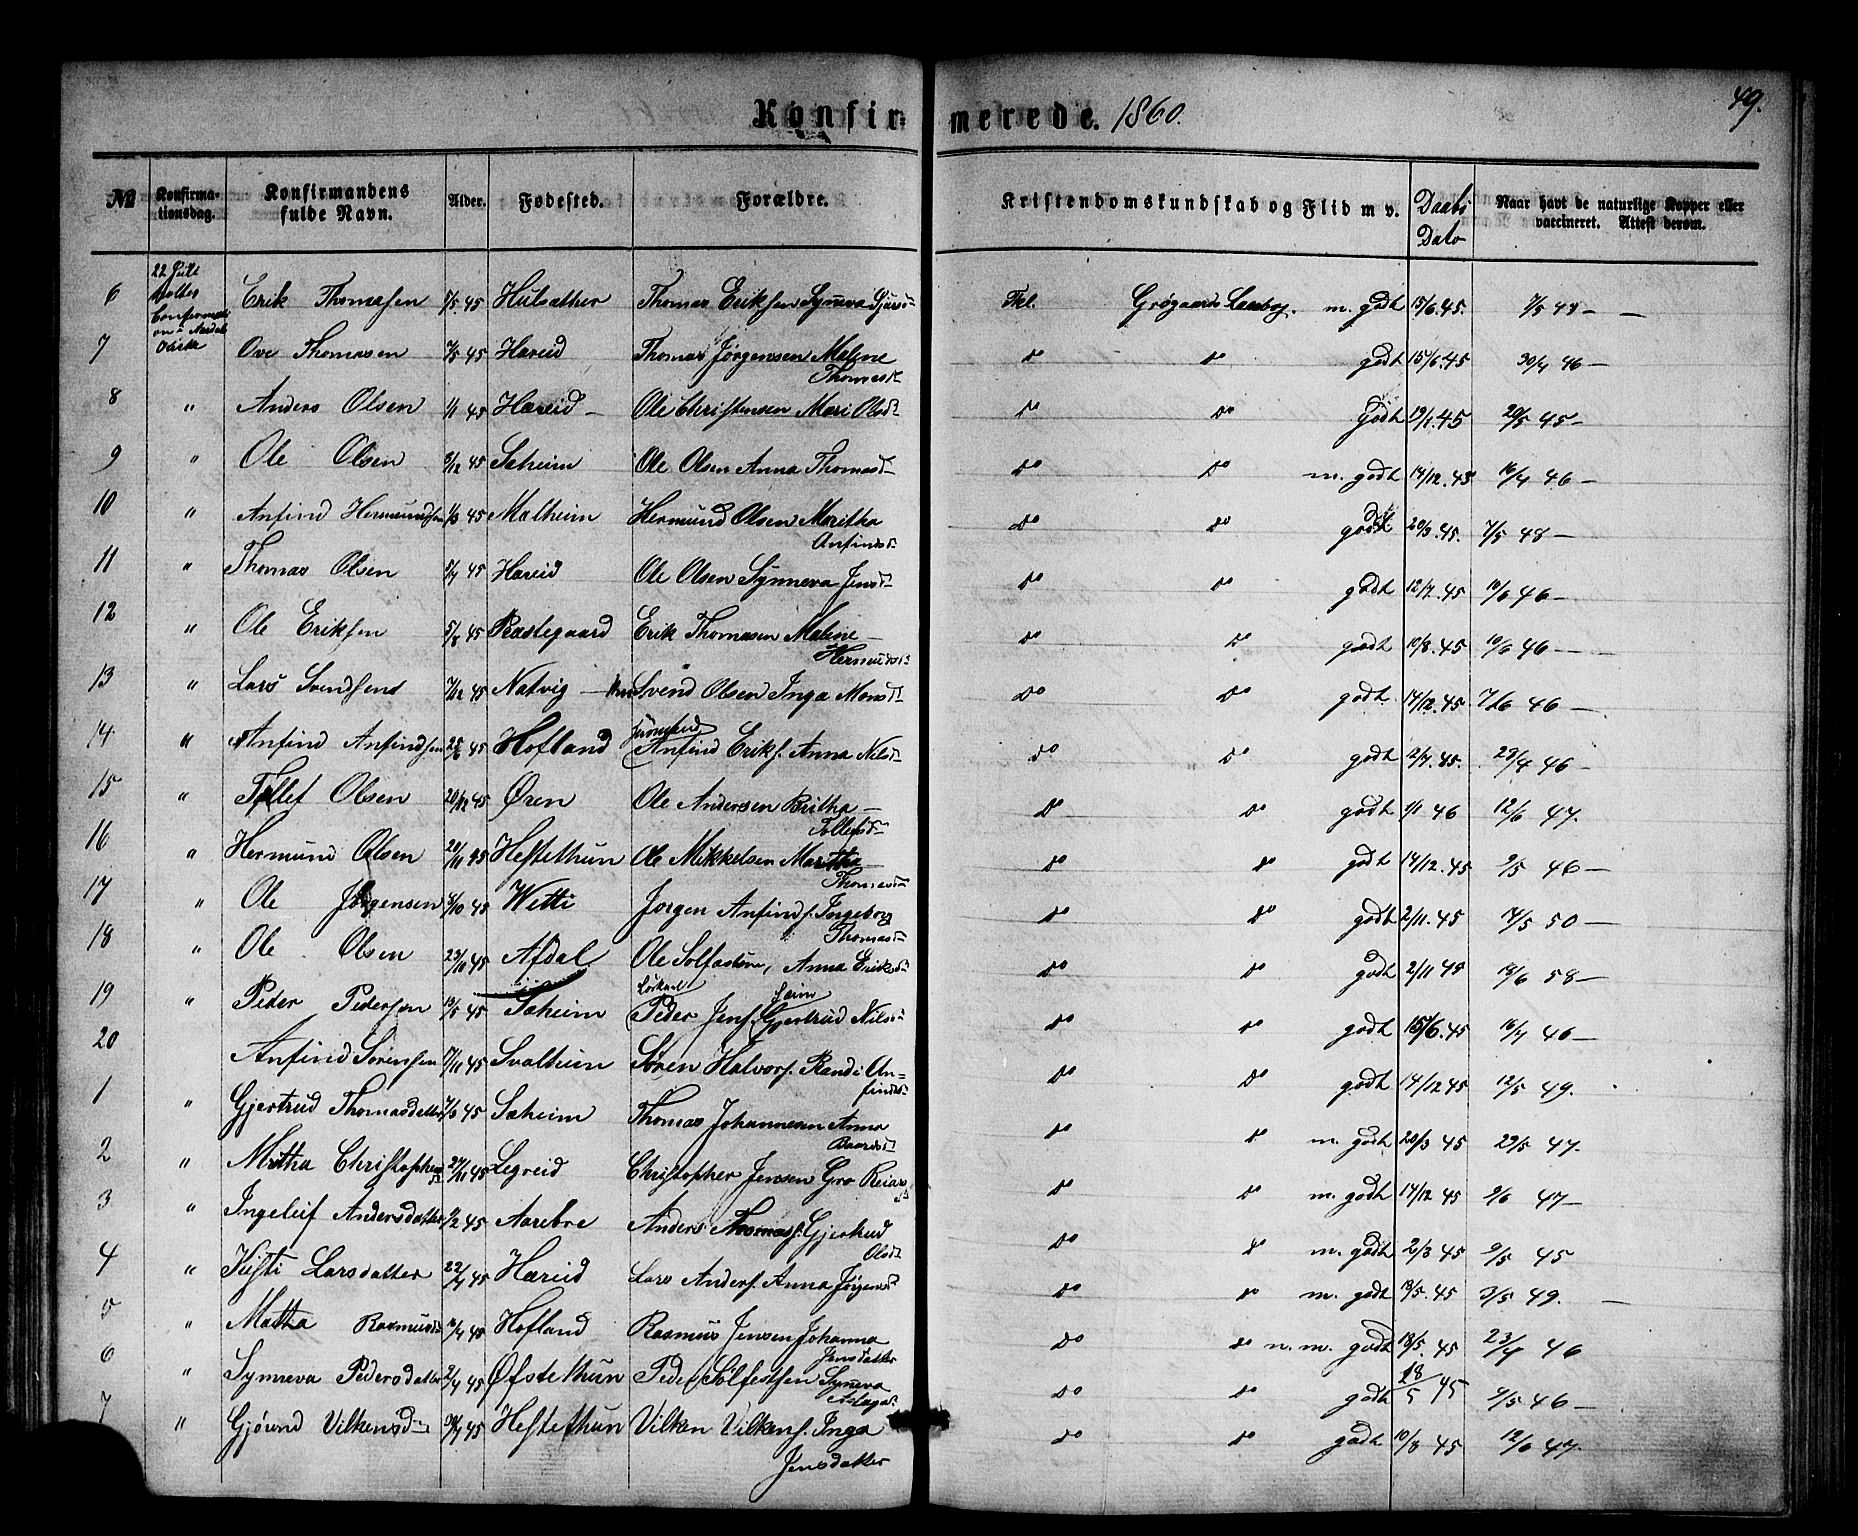 Konfirmerede. 1860. 49.
№ Konfirmationsdag. Konfirmandens fulde Navn. Alder. Fødested. Forældre. Kristendomskundskab og Flid m v. Daabs Dato Naar havt de naturlige Kopper eller vaccineret. Attest derom.
6 22 Juli Erik Thomassen 7/5 45 Thomas Eriksen Synneva m. godt 15/6 45. 7/5 48 —
7 Ove Thomasen 45 Hæreid Thomas Jørgensen Malene Thomasd d° d° godt 15/6 45 30/4 46 —
8 " Anders Olsen 1/1 45 Hæreid — Ole Christensen Mari Olsd d° d° godt 19/1 45 20/5 45 —
9 " Ole Olsen 3/12 45 Sæheim Ole Olsen Anna Thomasd d° d° m. godt 14/12. 45 16/4 46 —
10 " Anfind Hermundsen 1/3 45 Molheim Hermund Olsen Maritha Anfindsd d° d° godt 20/3. 45. 7/5 48 —
11 " Thomas Olsen 5/7 45 Hæreid Ole Olsen Synneva Jensd d° d° godt 12/7. 45 10/6 46 —
12 " Ole Eriksen 5/8 45 Præstegaard Erik Thomasen Malene — Hermundsd d° d° godt 10/8. 45 10/6 46 —
13 " Lars Svendsen 7/12 45 Natvig — Svend Olsen Inga Monsd d° d° godt 14/12. 45 7/6 46 —
14 " Anfind Anfindsen 25/6 45 Hofland Anfind Eriks. Anna Nilsd d° d° godt 2/7. 45. 23/4 46 —
15 " Tollef Olsen 20/12 45 Øren Ole Andersen Britha — Tollefsd d° d° godt 1/1 46 12/6 47.
16 " Hermund Olsen 20/11 45 Heftethun Ole Mikkelsen Maritha — Thomasd d° d° godt 14/12. 45 9/5 46 —
17 " Ole Jørgensen 4/10 45 Wetti Jorgen Anfinds. Ingeborg Thomasd d° d° godt 2/11. 45 14/5 50 —
18 " Ole Olsen 23/10 45 Afdal Ole Solfæstsen, Anna Eriksd d° d° godt 2/11 45 18/6 58 —
19 " Peder Pedersen 13/5 45 Sæheim Peder Jens. Gjertrud Nilsd d° d° godt 15/6. 45 16/4 46 —
20 Anfind Sørensen 7/11 45 Svalheim Søren Halvors. Randi Anfindsd d° d° godt 14/12 45 12/5 49.
1 " Gjertrud Thomasdatter 7/3 45 Sæheim Thomas Johannesen Anna Baardsd d° d° m. godt 20/3 45 29/5 47.
2 " Mritha Christophersd 27/11 45 Legreid Christopher Jensen Gro Reiarsd d° d° m. godt 14/12 45 9/6 47 —
3 " Ingeleif Andersdatter 9/2 45 Aarebre Anders Thomass. Gjertrud Olsd d° d° m. godt 2/3 45 9/5 45
4 " Kisti Larsdatter 22/4 45 Hæreid Lars Anders. Anna Jørgensd d° d° m. godt 13/5. 45 3/5 49. —
5 " Matha Rasmusd 16/4 45 Hofland Rasmus Jensen Johanna Jensdatter d° d° m. m. godt 18/5. 45 23/4 46
6 " Synneva Pedersdatter 2/4 45 Øfstethun Peder Solfestsen Synneva d° d° godt 18/5 45 9/5 46 —
7 " Gjørend Vilkensd 30/7 45 Heftethun Vilken Vilkens. Inga Jensdatter d° d° godt 10/8 45 12/6 47.